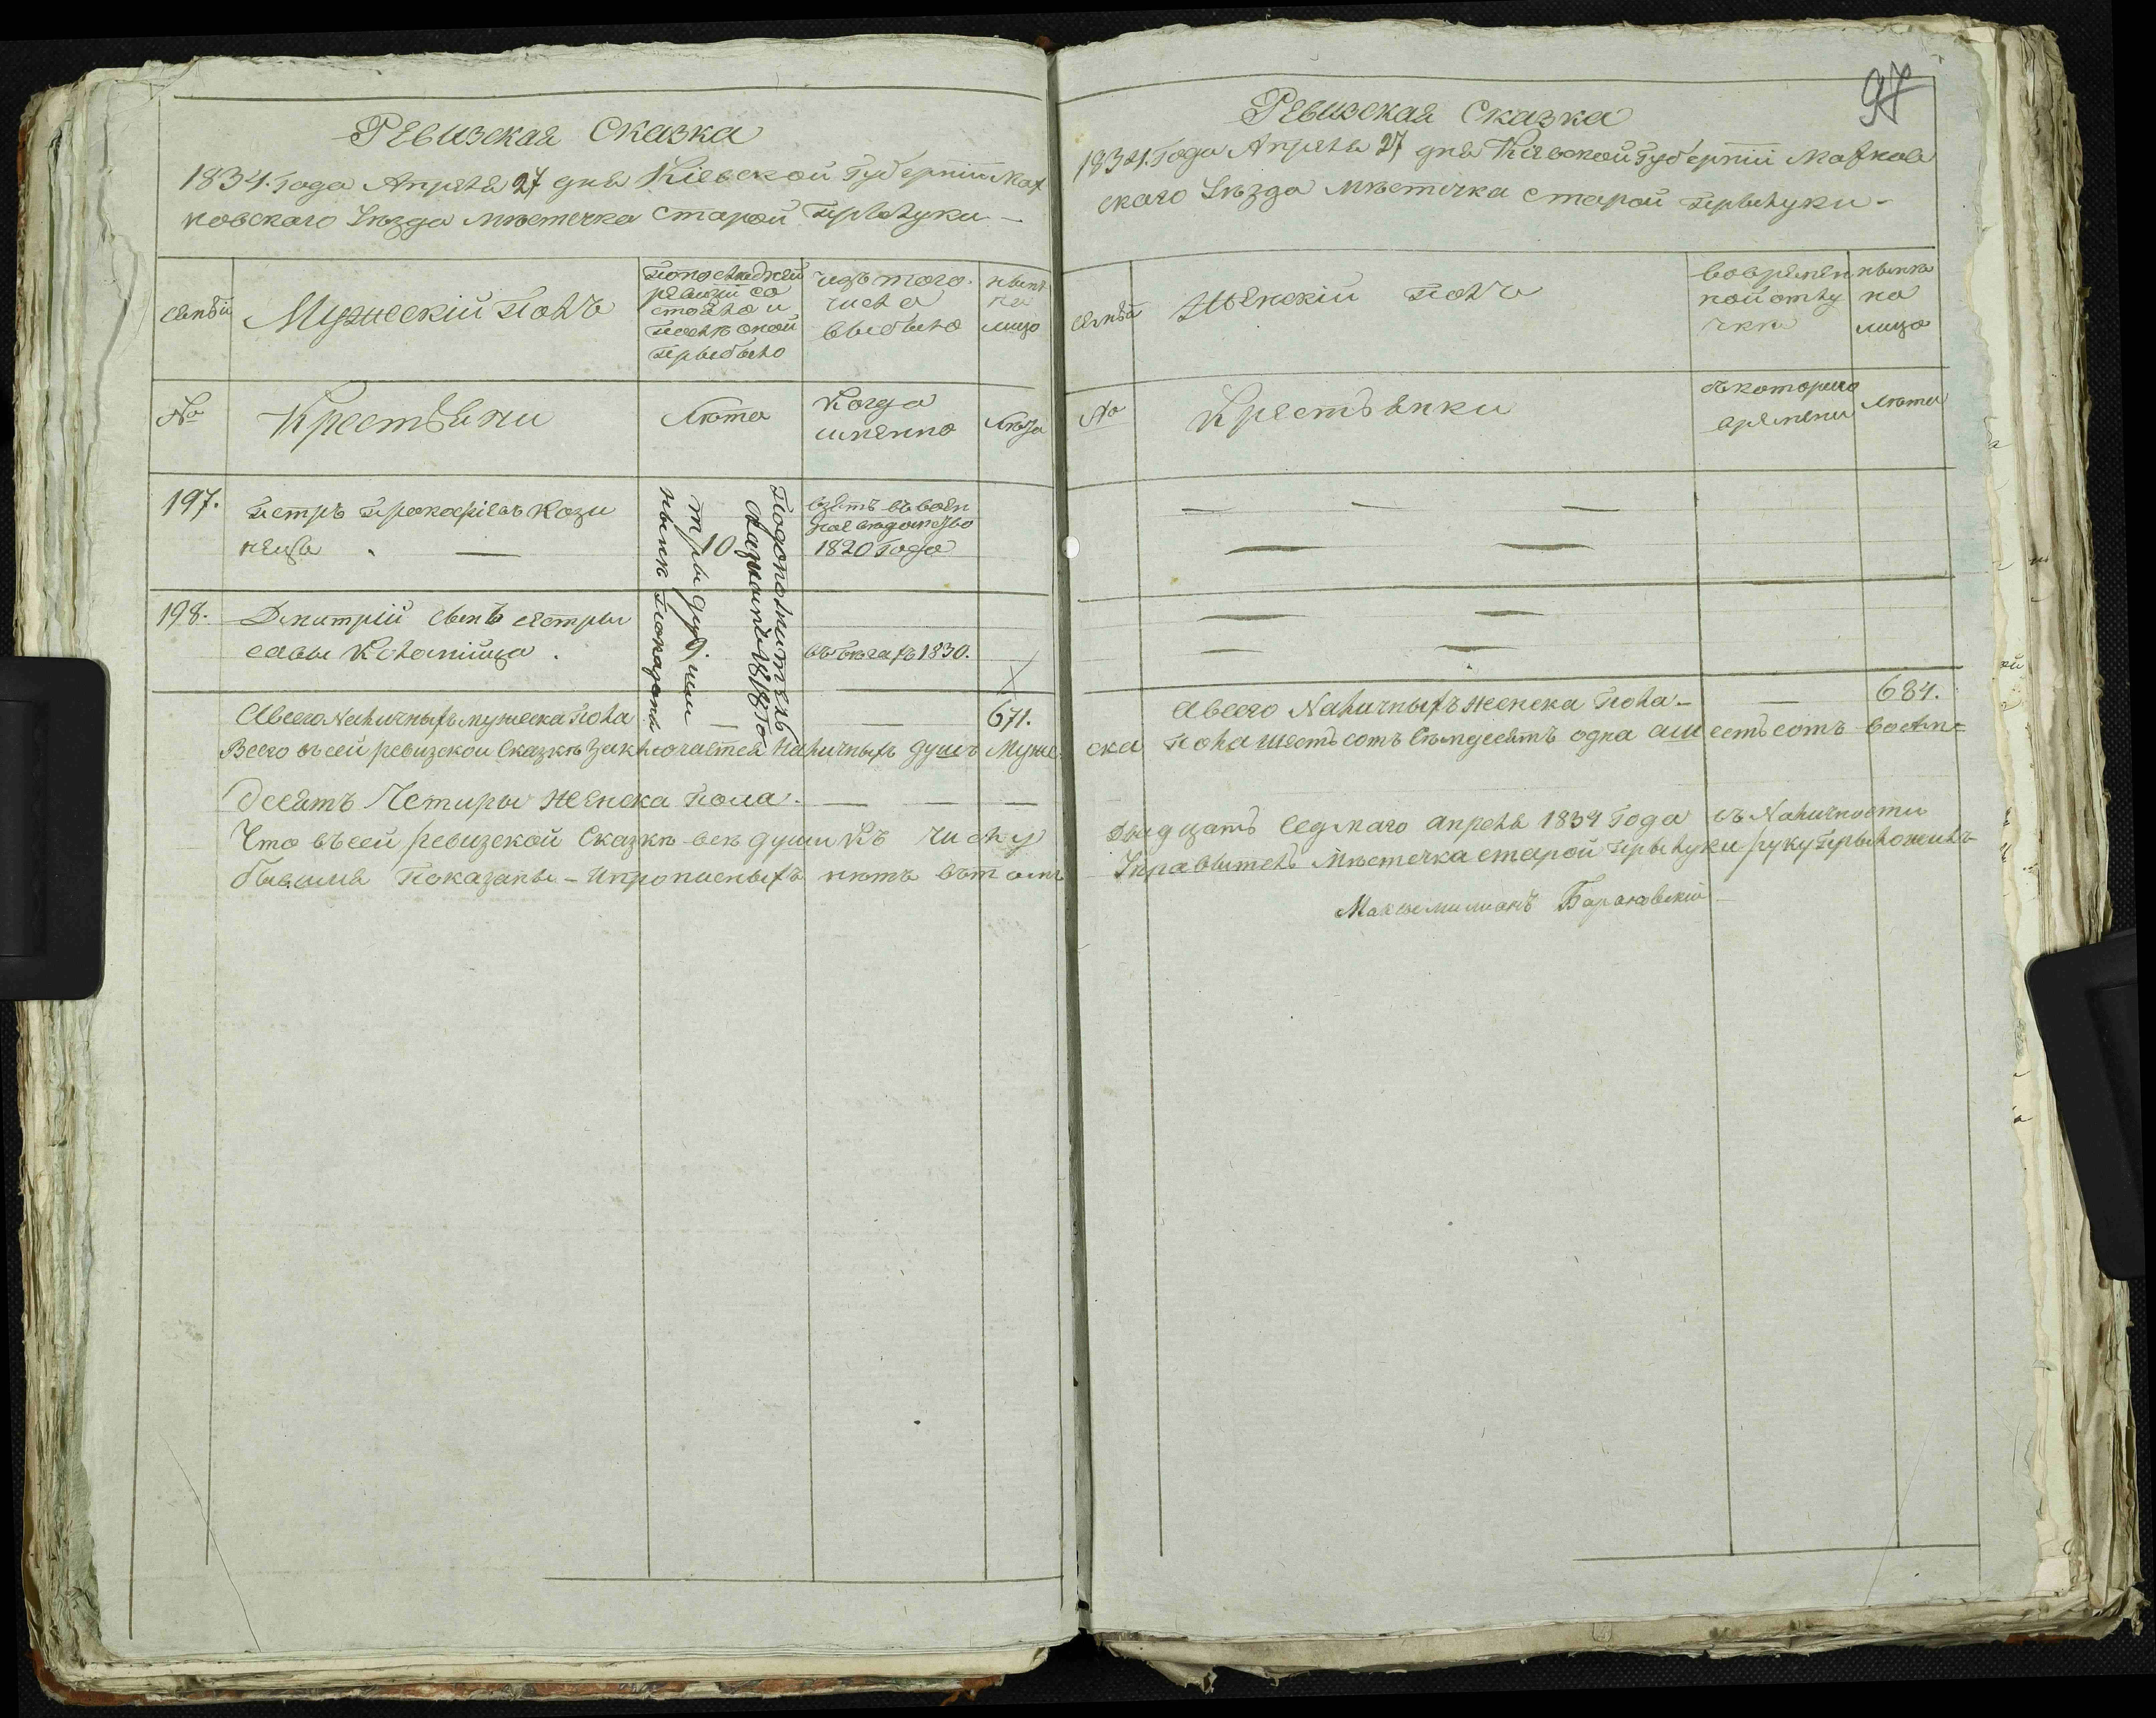 Ревизская Сказка
1834. Года Апреля 27 дня Кіевской Губерніи Мах
новскаго Уѣзда мѣстечка Старой Прылуки —
семьи
Мужескій Полъ
По последней
ревизіи со
стояло и
после оной
прыбыло
изъ того
числа
выбыло
нынѣ
на
лицо
№
Крестьяни
Лѣта
Когда
именно
Лѣта
197.
Петръ Прокофіевъ Кози
10
взятъ въ воен
ное ведомство
1820 Года
198.
Дмитрій сынъ сестры
савы Коломійца .
9.
въ бегахъ 1830.
По дополнитель
сказкамъ 1818 го
три души
нынѣ показаны
Авсего Наличныхъ мужеска Пола — — 671.
Всего въ сей ревизской Сказкѣ Заключается Наличныхъ душъ Муже
десятъ Четыры женска Пола. — — —
Что въ сей ревизской Сказкѣ всѣ души къ числу
Показаны — Ипрописныхъ нѣтъ вътомъ
97
Ревизская Сказка
1834. Года Апреля 27 дня Кіевской Губерніи Махнов
скаго Уѣзда мѣстечка Старой Прылуки —
семьи
Женскій Полъ
Во времен
ной отлу
чке
нынѣ
на
лицо
№
Крестьянки
съ котораго
времени
Лѣта
Авсего Наличныхъ женска Пола — — 684.
ска Пола шестьсотъ семдесятъ одна а шестьсотъ восем=
Двадцать Седмаго апреля 1834 Года въ Наличности
Управытель Мѣстечка старой Прылуки руку Прыложилъ
Максимилианъ Барановскій